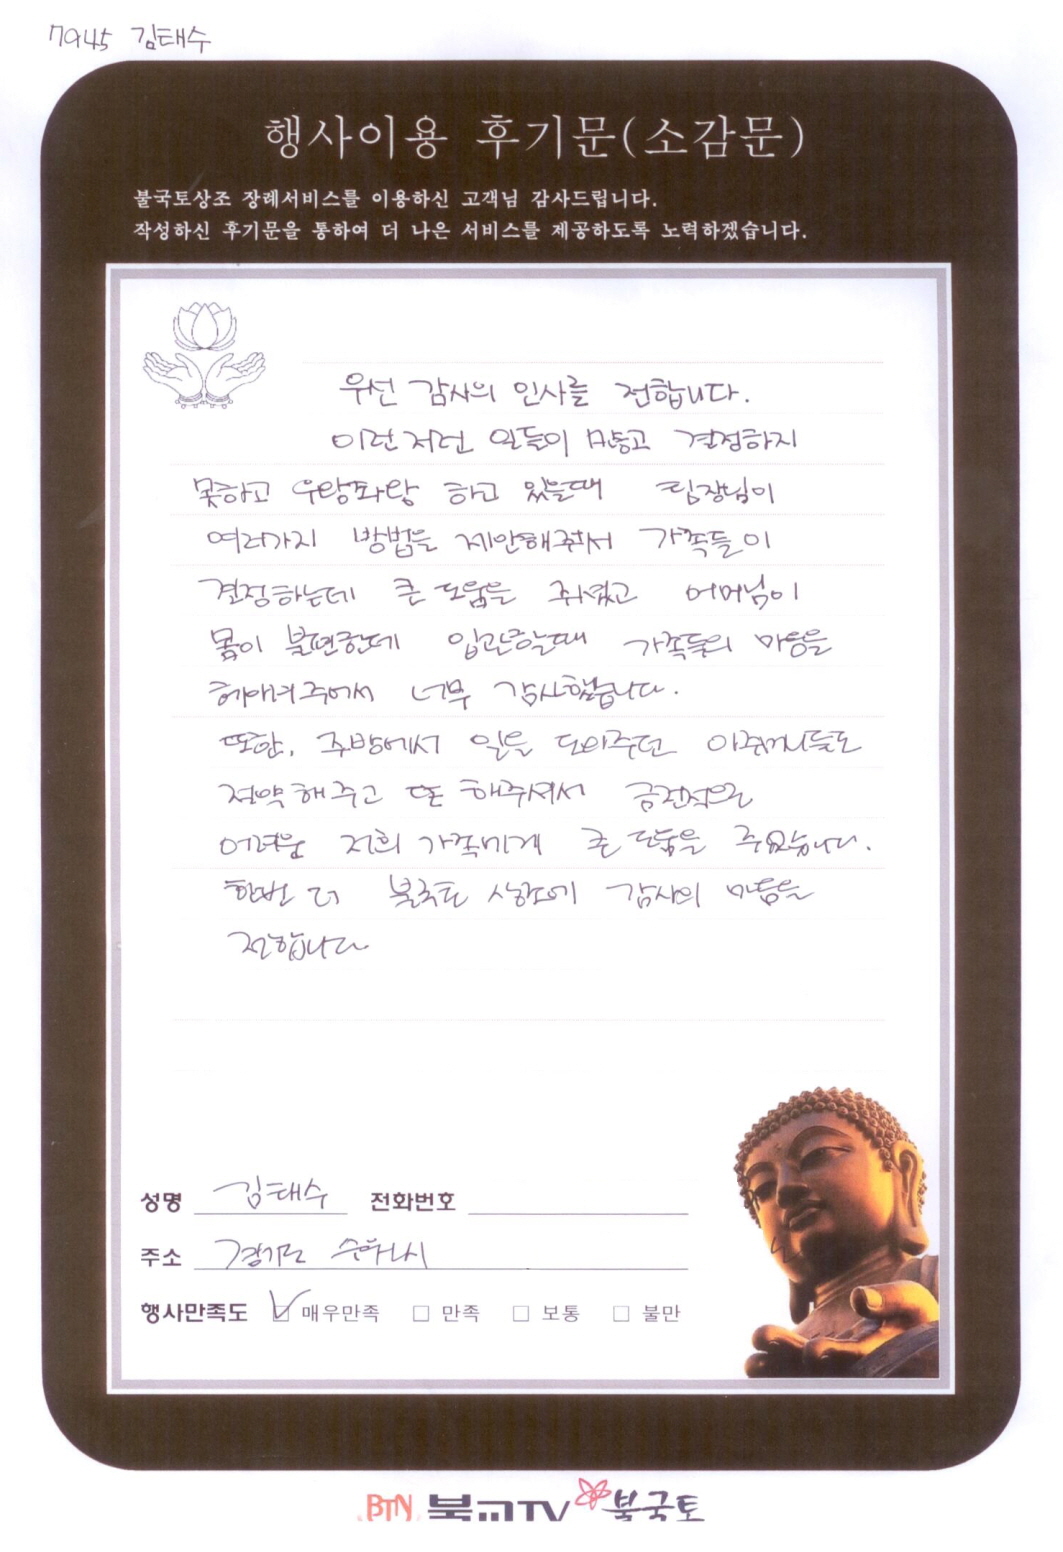 7945 김태수
행사이용 후기문(소감문)
불국토상조 장례서비스를 이용하신 고객님 감사드립니다.
작성하신 후기문을 통하여 더 나은 서비스를 제공하도록 노력하겠습니다.
우선 감사의 인사를 전합니다.
이런저런 일들이 많고 결정하지
못하고 우왕좌왕 하고 있을때 팀장님이
여러가지 방법을 제안해주셔서 가족들이
결정하는데 큰 도움을 주셨고 어머님이
몸이 불편한데 입관할때 가족들의 마음을
헤아려주어서 너무 감사했습니다.
또한, 주방에서 일을 도와주던 아주머니들도
절약해주고 또 해주셔서 금전적으로
어려운 저희 가족에게 큰 도움을 주었습니다.
한번 더 불국토 상조에 감사의 마음을
전합니다
성명 김태수 전화번호
주소 경기도 수원시
행사만족도 매우만족 만족 보통 불만
BTN 불교TV 불국토